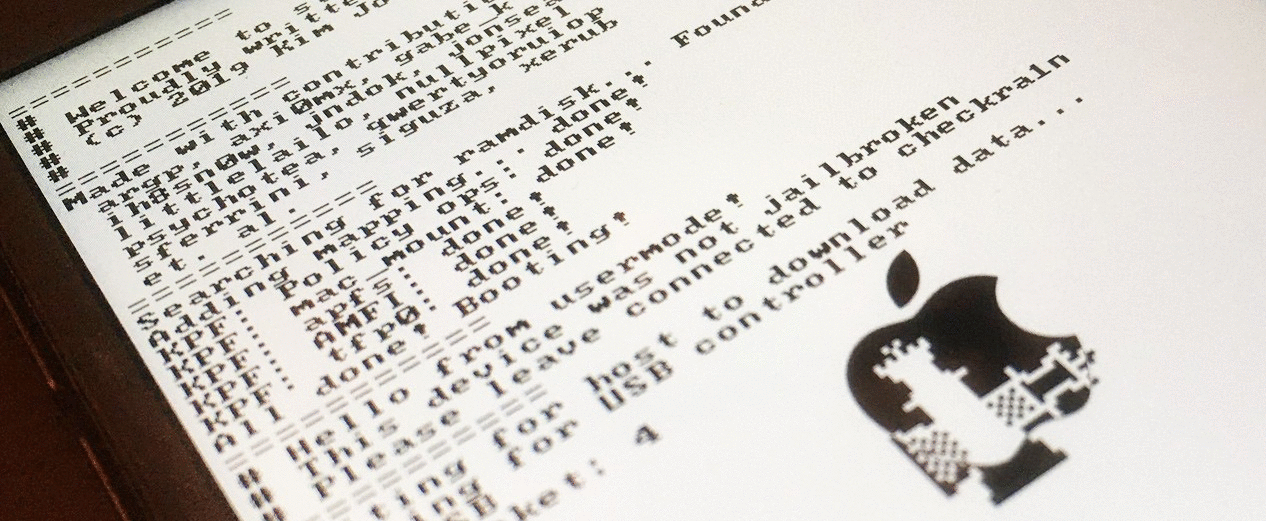 ==============
# Welcome to
# Proudly
# (c) 2019 Kim
#
==============
Made with
argp, axi0mx, gabe_k
ih8sn0w, jndok, jonsea
littlelailo, nullpixel
psychotea, qwertyoruiop
sferrini, siguza, xerub
et. al.
==============
Searching for ramdisk... Found
Adding mapping... done!
KPF: Policy ops: done!
KPF: mac_mount: done!
KPF: apfs: done!
KPF: AMFI: done!
KPF: tfp0: done!
All done! Booting!
==============
# Hello from usermode!
# This device was not jailbroken
# Please leave connected to checkra1n
==============
for host to download data...
for USB controller
USB
4